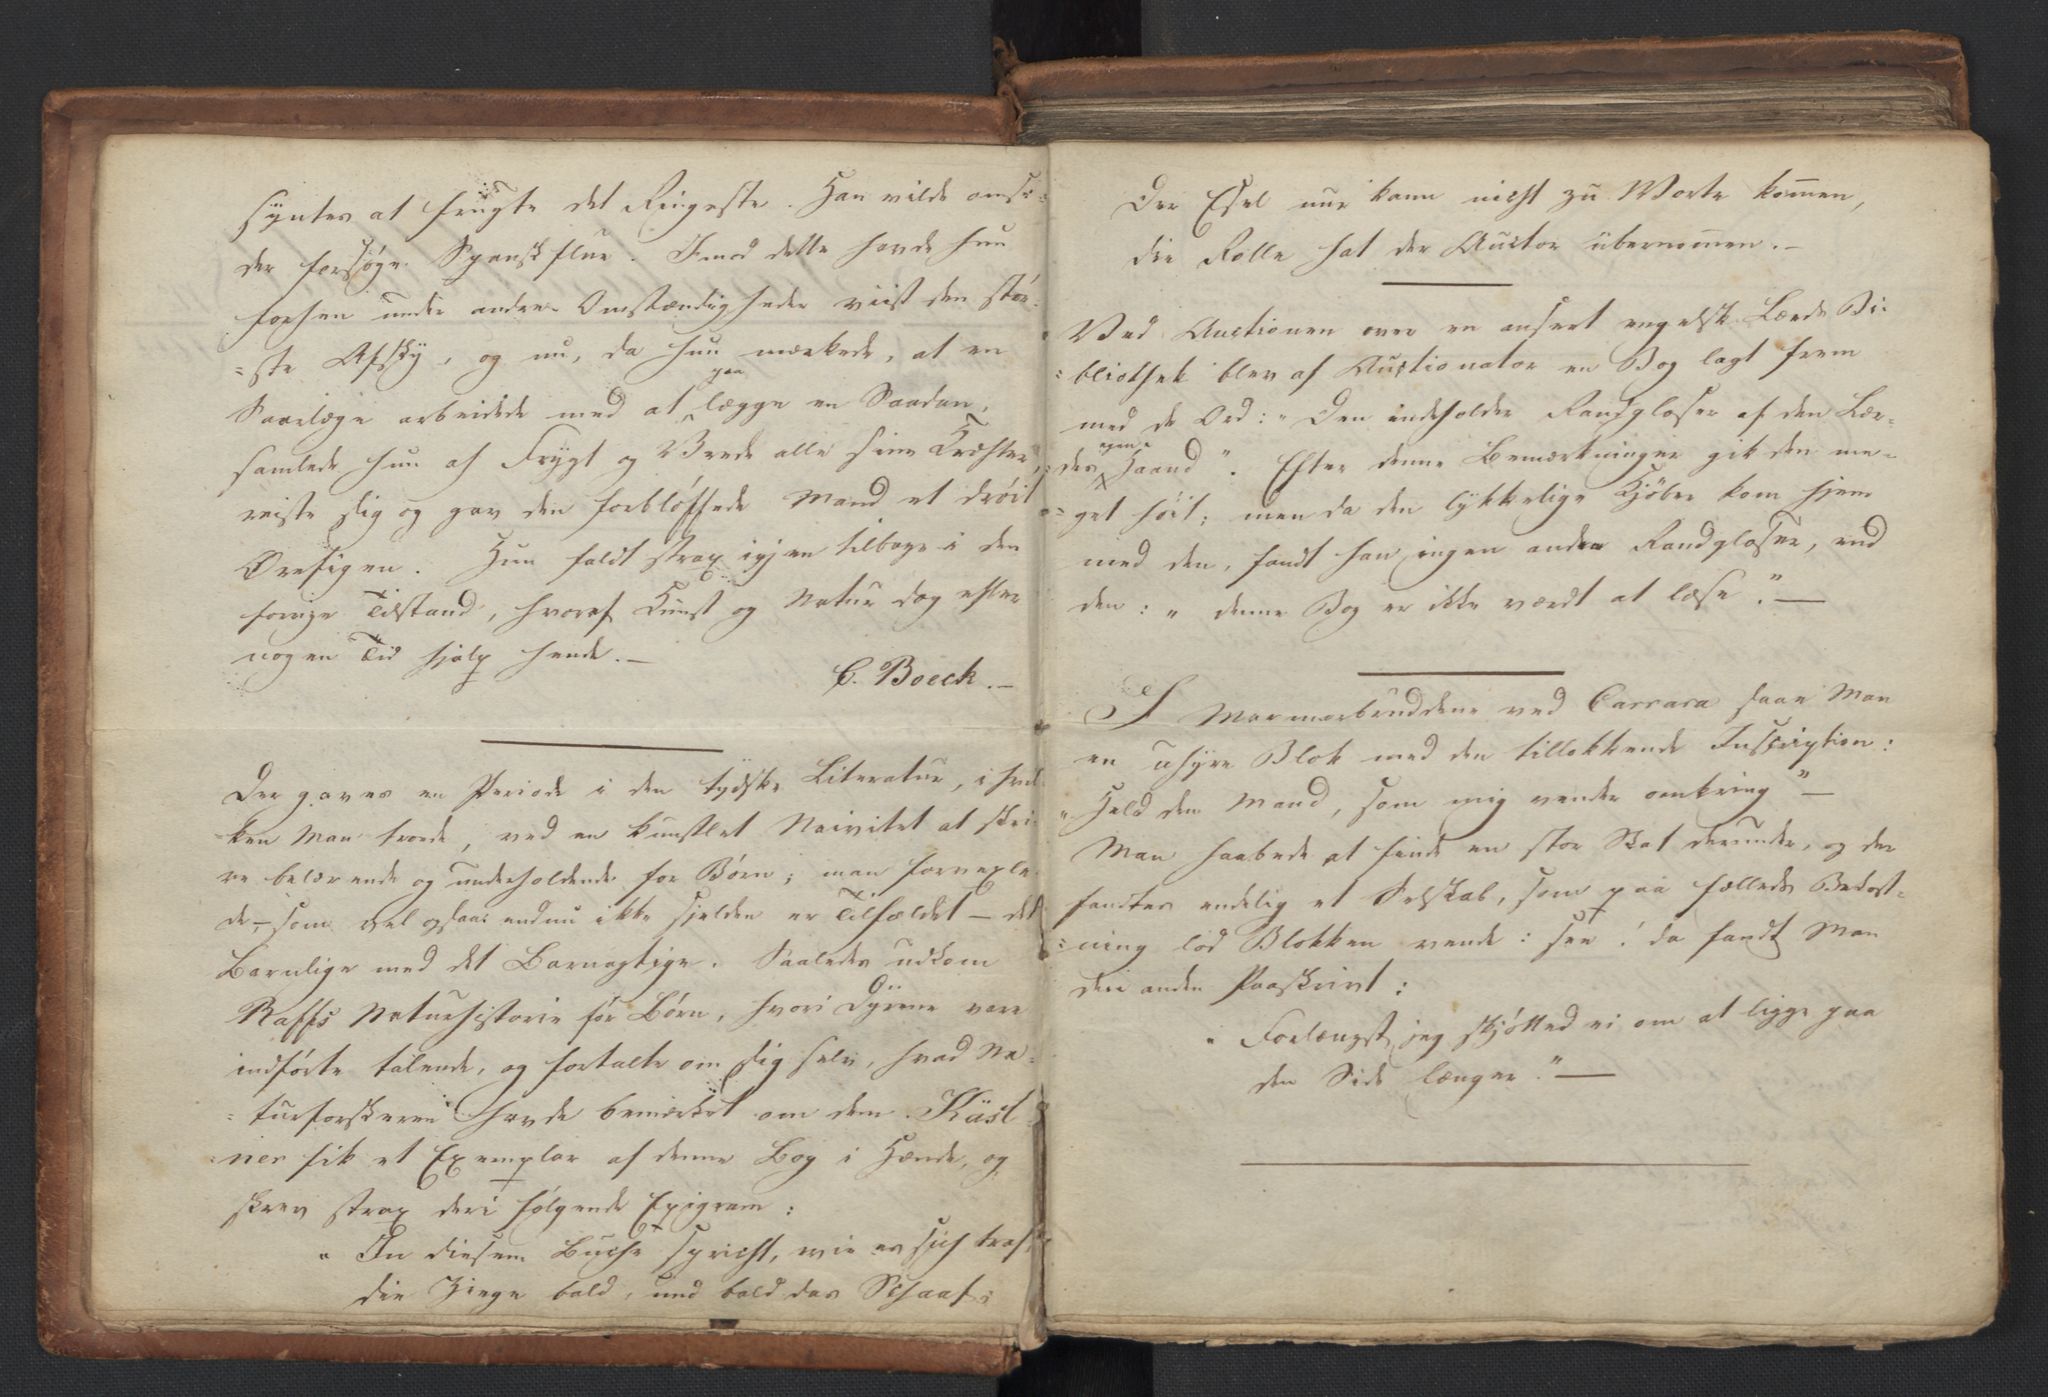 syntes at frugte det Ringeste. Han vilde omsi=
der forsøge Spanskflue. Imod dette havde hun
forhen under andre Omstændigheder viist den stør=
=ste Afsky, og nu, da hun mærkede, at en
Saarlæge arbeidede med at paa lægge en Saadan,
samlede hun af Frygt og Vrede alle sine Kræfter,
reiste sig og gav den forbløffede Mand et drøit
Ørefigen. Hun faldt strax igjen tilbage i den
forrige Tilstand, hvoraf Kunst og Natur dog efter
nogen Tid hjalp hende.—
C. Boeck.—
Der gaves en Periode i den tydske Literatur, i hvil=
ken Man troede, ved en kunstlet Naivitet at skri=
ve belærende og underholdende for Børn; man forvexle=
de,— som vel ogsaa endnu ikke sjelden er Tilfældet — det
Barnlige med det Barnagtige. Saaledes udkom
Raffs Naturhistorie før Børn, hvori Dyrene vare
indførte talende, og fortalte om sig selv, hvad Na=
=turforskeren havde bemærket om dem. Käst=
=ner fik et Exemplar af denne Bog i Hænde, og
skrev strax deri følgende Epigram:
"In diesem Buche spricht, wie es sich traf,
die Ziege bald, und bald das Schaaf;
Der Esel nur kann nicht zu Worte kommen,
die Rolle hat der Auctor übernommen.—
Ved Auctionen over en anseet engelsk Lærds Bi=
=bliothek blev af Auctionator en Bog lagt frem
med de Ord: "Den indeholder Randglosser af den Lær=
des egen Haand". Efter denne Bemærkninger gik den me=
=get høit; men da den lykkelige Kjøber kom hjem
med den, fandt han ingen anden Randglosse, end
den: "denne Bog er ikke værdt at læse."—
I Marmorbruddene ved Carrara saae Man
en uhyre Blok med den tillokkende Inscription:
"Held den Mand, som mig vender omkring"—
Man haabede at finde en stor Skat derunder, og der
fandtes endelig et Selskab, som paa fælleds Bekost=
=ning lod Blokken vende: see! da fandt Man
den anden Paaskrivt:
"Forlængst jeg skjøtted ei om at ligge paa
den Side længer."—